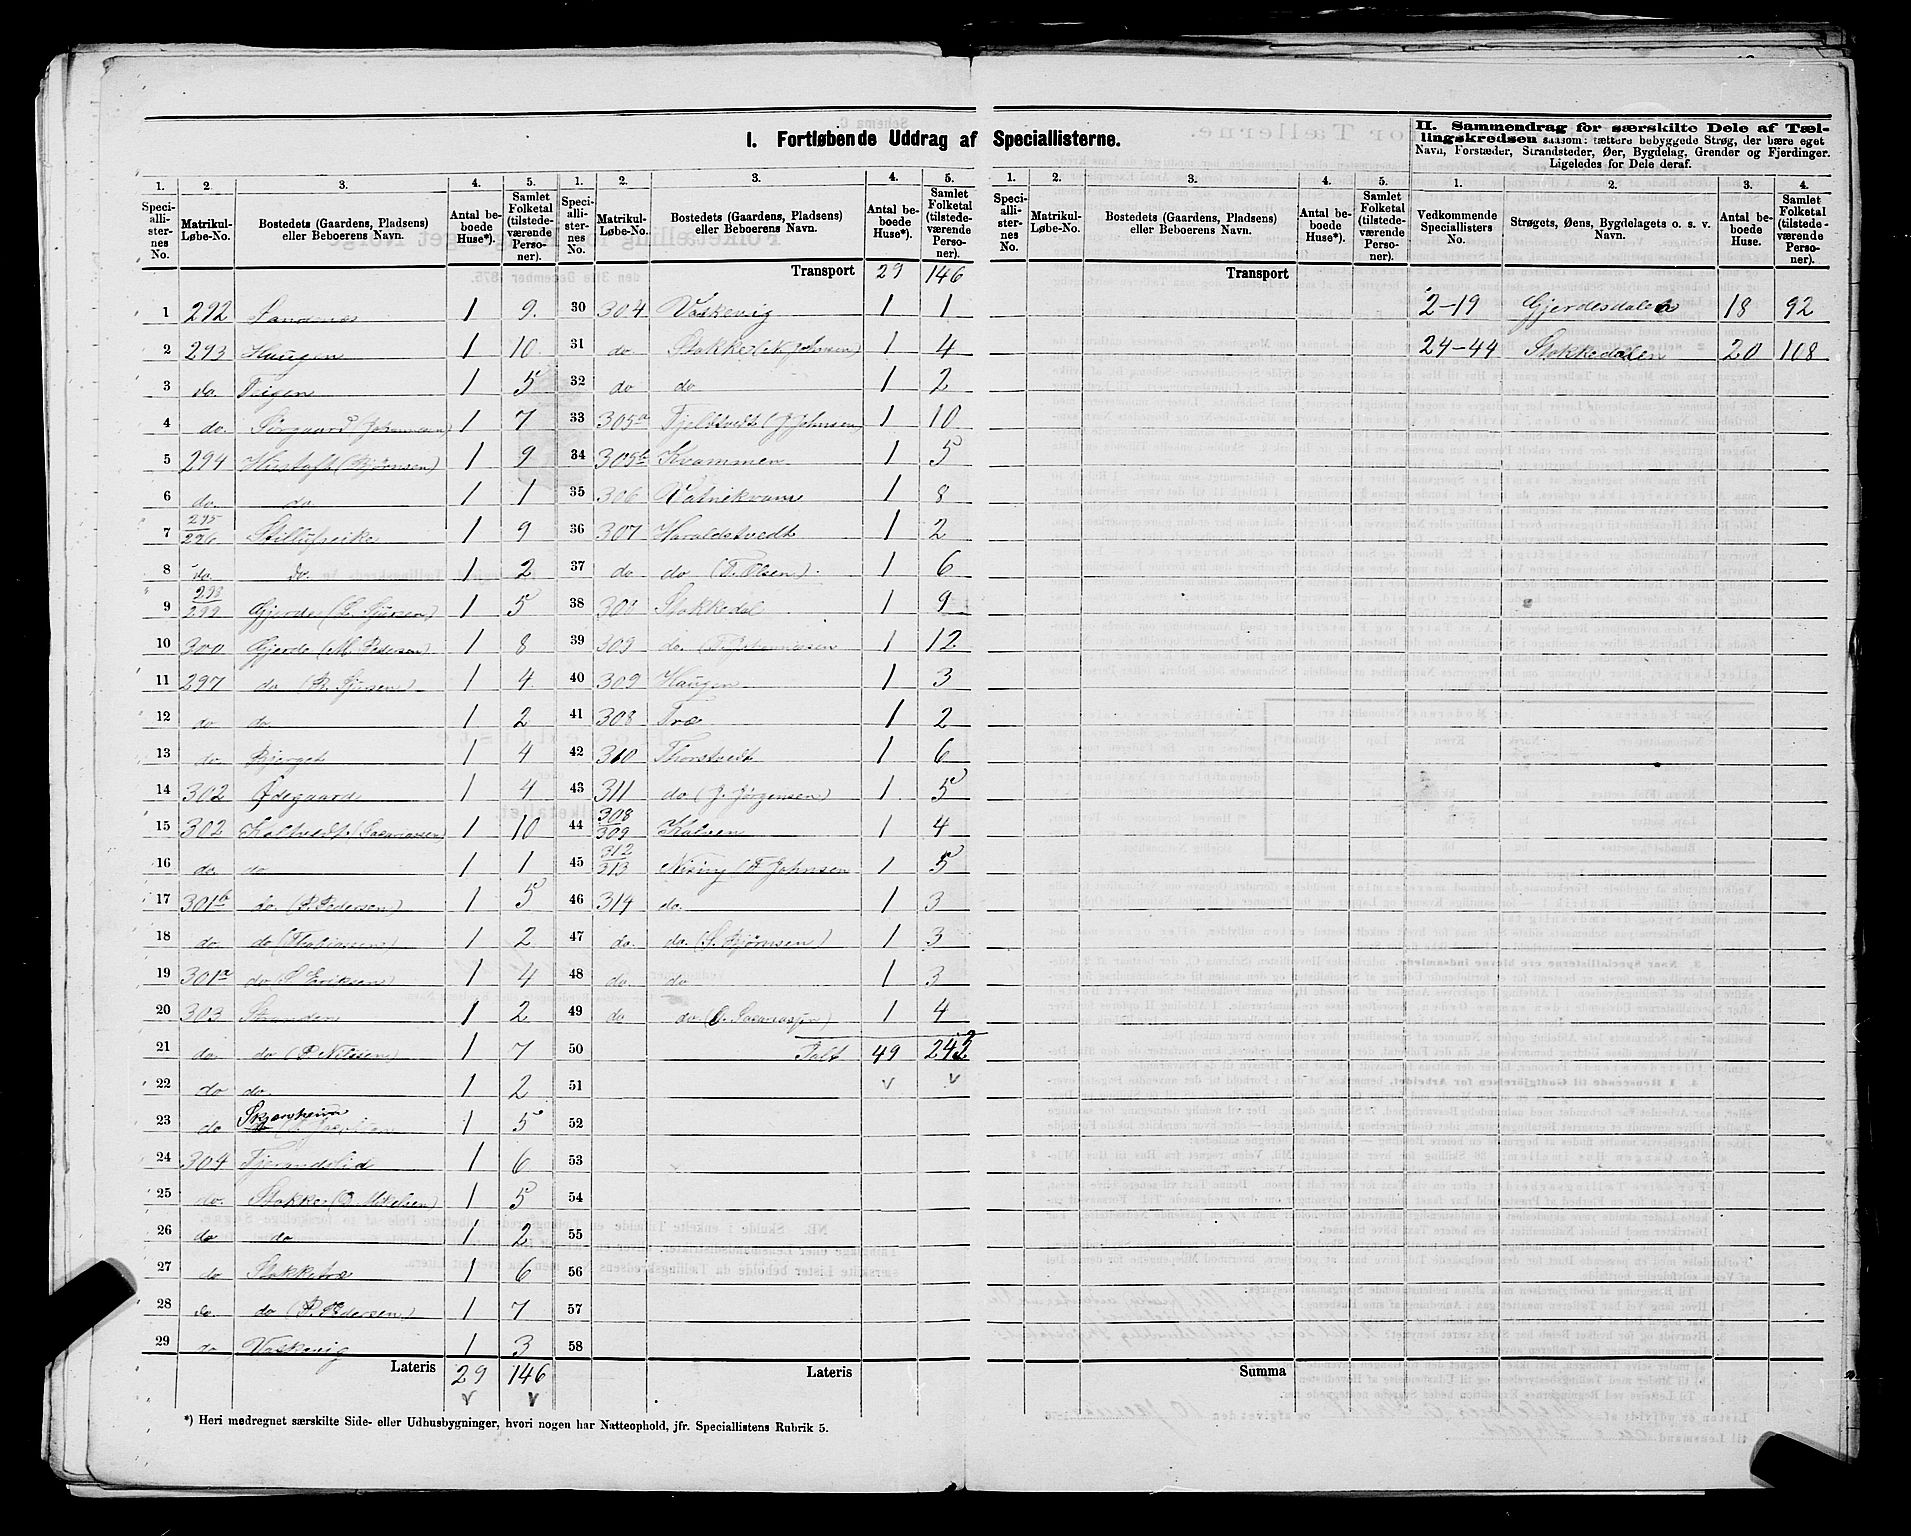 I. Fortløbende Uddrag af Speciallisterne.
II. Sammendrag for særskilte Dele af Tæl-
lingskredsen saasom: tættere bebyggede Strøg, der bære eget
Navn, Forstæder, Strandsteder, Øer, Bygdelag, Grender og Fjerdinger.
Ligeledes for Dele deraf.
1. 2. 3. 4. 5. 1. 2. 3. 4. 5. 1. 2. 3. 4. 5. 1. 2. 3. 4.
Speciallisternes No. Matrikul-Løbe-No. Bostedets (Gaardens, Pladsens) eller Beboerens Navn. Antal beboede Huse*). Samlet Folketal (tilstedeværende Personer).
Speciallisternes No. Matrikul-Løbe-No. Bostedets (Gaardens, Pladsens) eller Beboerens Navn. Antal beboede Huse*). Samlet Folketal (tilstedeværende Personer).
Speciallisternes No. Matrikul-Løbe-No. Bostedets (Gaardens, Pladsens) eller Beboerens Navn. Antal beboede Huse*). Samlet Folketal (tilstedeværende Personer).
Vedkommende Speciallisters No. Strøgets, Øens, Bygdelagets o. s. v. Navn. Antal beboede Huse. Samlet Folketal (tilstedeværende Personer).
1 292 Sandnes 1 9.
2 293 Haugen 1 10
3 do. Teigen 1 5
4 do. Sørgaard (Johannesen) 1 7
5 294 Hustoft (Bjørnsen) 1 9
6 do. do 1 1
7 295/296 1 9
8 do. do. 1 2
9 298/299 Gjerde (L. Sjursen) 1 5
10 300 Gjerde (M. Pedersen) 1 8
11 297 do (R. Sjursen) 1 4
12 do do 1 2
13 do. Bjerget 1 4
14 302 Ødegaard 1 4
15 302 Kaltvedt (Sacariasen) 1 10
16 do. do 1 1
17 301b do. (P. Pedersen) 1 5
18 do. do (Thobiassen) 1 2
19 301a do (O Eriksen) 1 4
20 303 Stranden 1 2
21 do. do (P. Nilssen) 1 7
22 do do. 1 2
23 do Skjersheim 1 5
24 304 Tjerandslid 1 6
25 do. Stokke (O. Mikelsen) 1 5
26 do do 1 2
27 do Stokketræ 1 6
28 do do (P. Pedersen) 1 7
29 do Vaskevig 1 3
Lateris 29 146
v v
Transport 29 146
30 304 Vaskevig 1 1
31 do. Stokke (K Johnsen) 1 4
32 do do 1 2
33 305a Fjeldtvedt (J Johnsen) 1 10
34 305b Kvammen 1 5
35 306 Vatnekvam 1 8
36 307 Haraldstvedt 1 2
37 do do (T. Olsen) 1 6
38 Stokkedal 1 9
39 309 do. (T. Johannessen 1 12
40 309 Haugen 1 3
41 308 Træ 1 2
42 310 Thorstvedt 1 6
43 311 do (J. Jørgensen) 1 5
44 308/309 Kalven 1 4
45 312/313 Nising (T Johnsen 1 5
46 314 do. 1 3
47 do. do. (S. Bjørnsen) 1 3
48 do do 1 3
49 do do (O. Sacariasen) 1 4
50 Ialt 49 242
51 v v
52
53
54
55
56
57
58
Lateris
Transport
Summa
2-19 Gjerdesdalen 18 92
24-44 Stokkedalen 20 108
*) Heri medregnet særskilte Side- eller Udhusbygninger, hvori nogen har Natteophold, jfr. Speciallistens Rubrik 5.